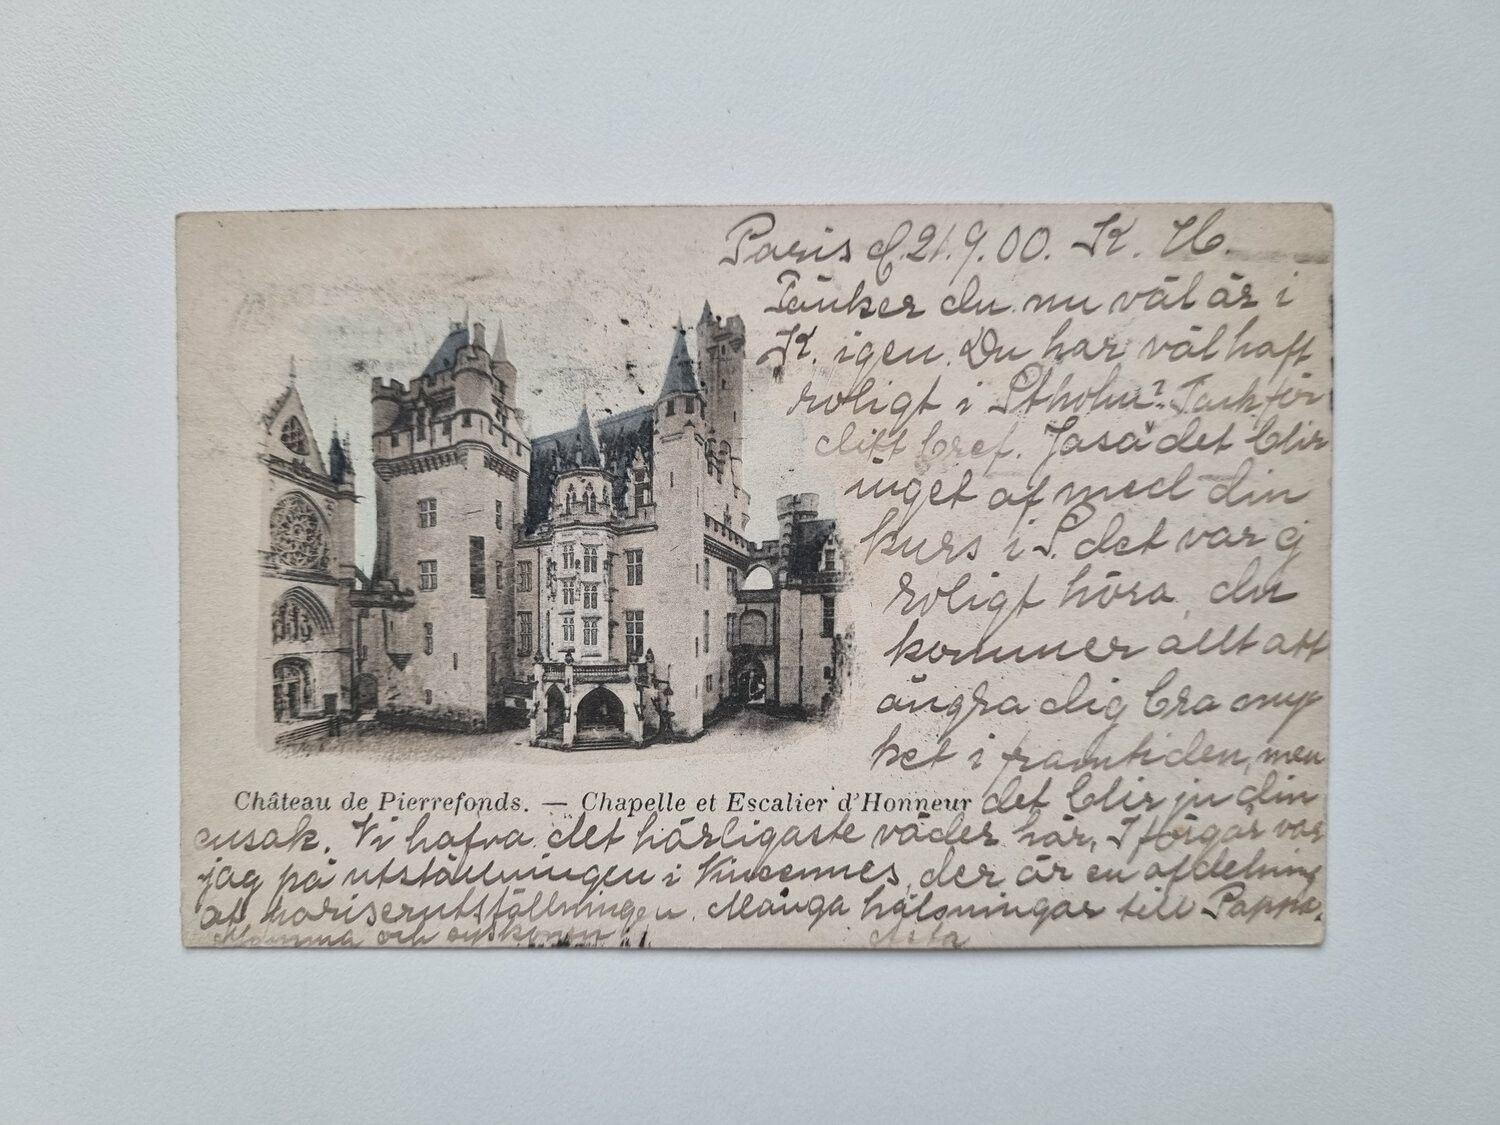 Paris d. 21.9.00. K. H.
Tänker du nu väl är i
K. igen. Du har väl haft
roligt i Stholm? Tack för
ditt bref. Jaså det blir
inget af med din
kurs i P. det var ej
roligt höra, du
kommer allt att
ångra dig bra myc
ket i framtiden, men
Château de Pierrefonds. — Chapelle et Escalier d'Honneur
det blir ju din
ensak. Vi hafva det härligaste väder här. I förgår var
jag på utställningen i Vincennes, der är en afdelning
af pariserutställningen. Många hälsningar till Pappa,
Mamma och syskonen